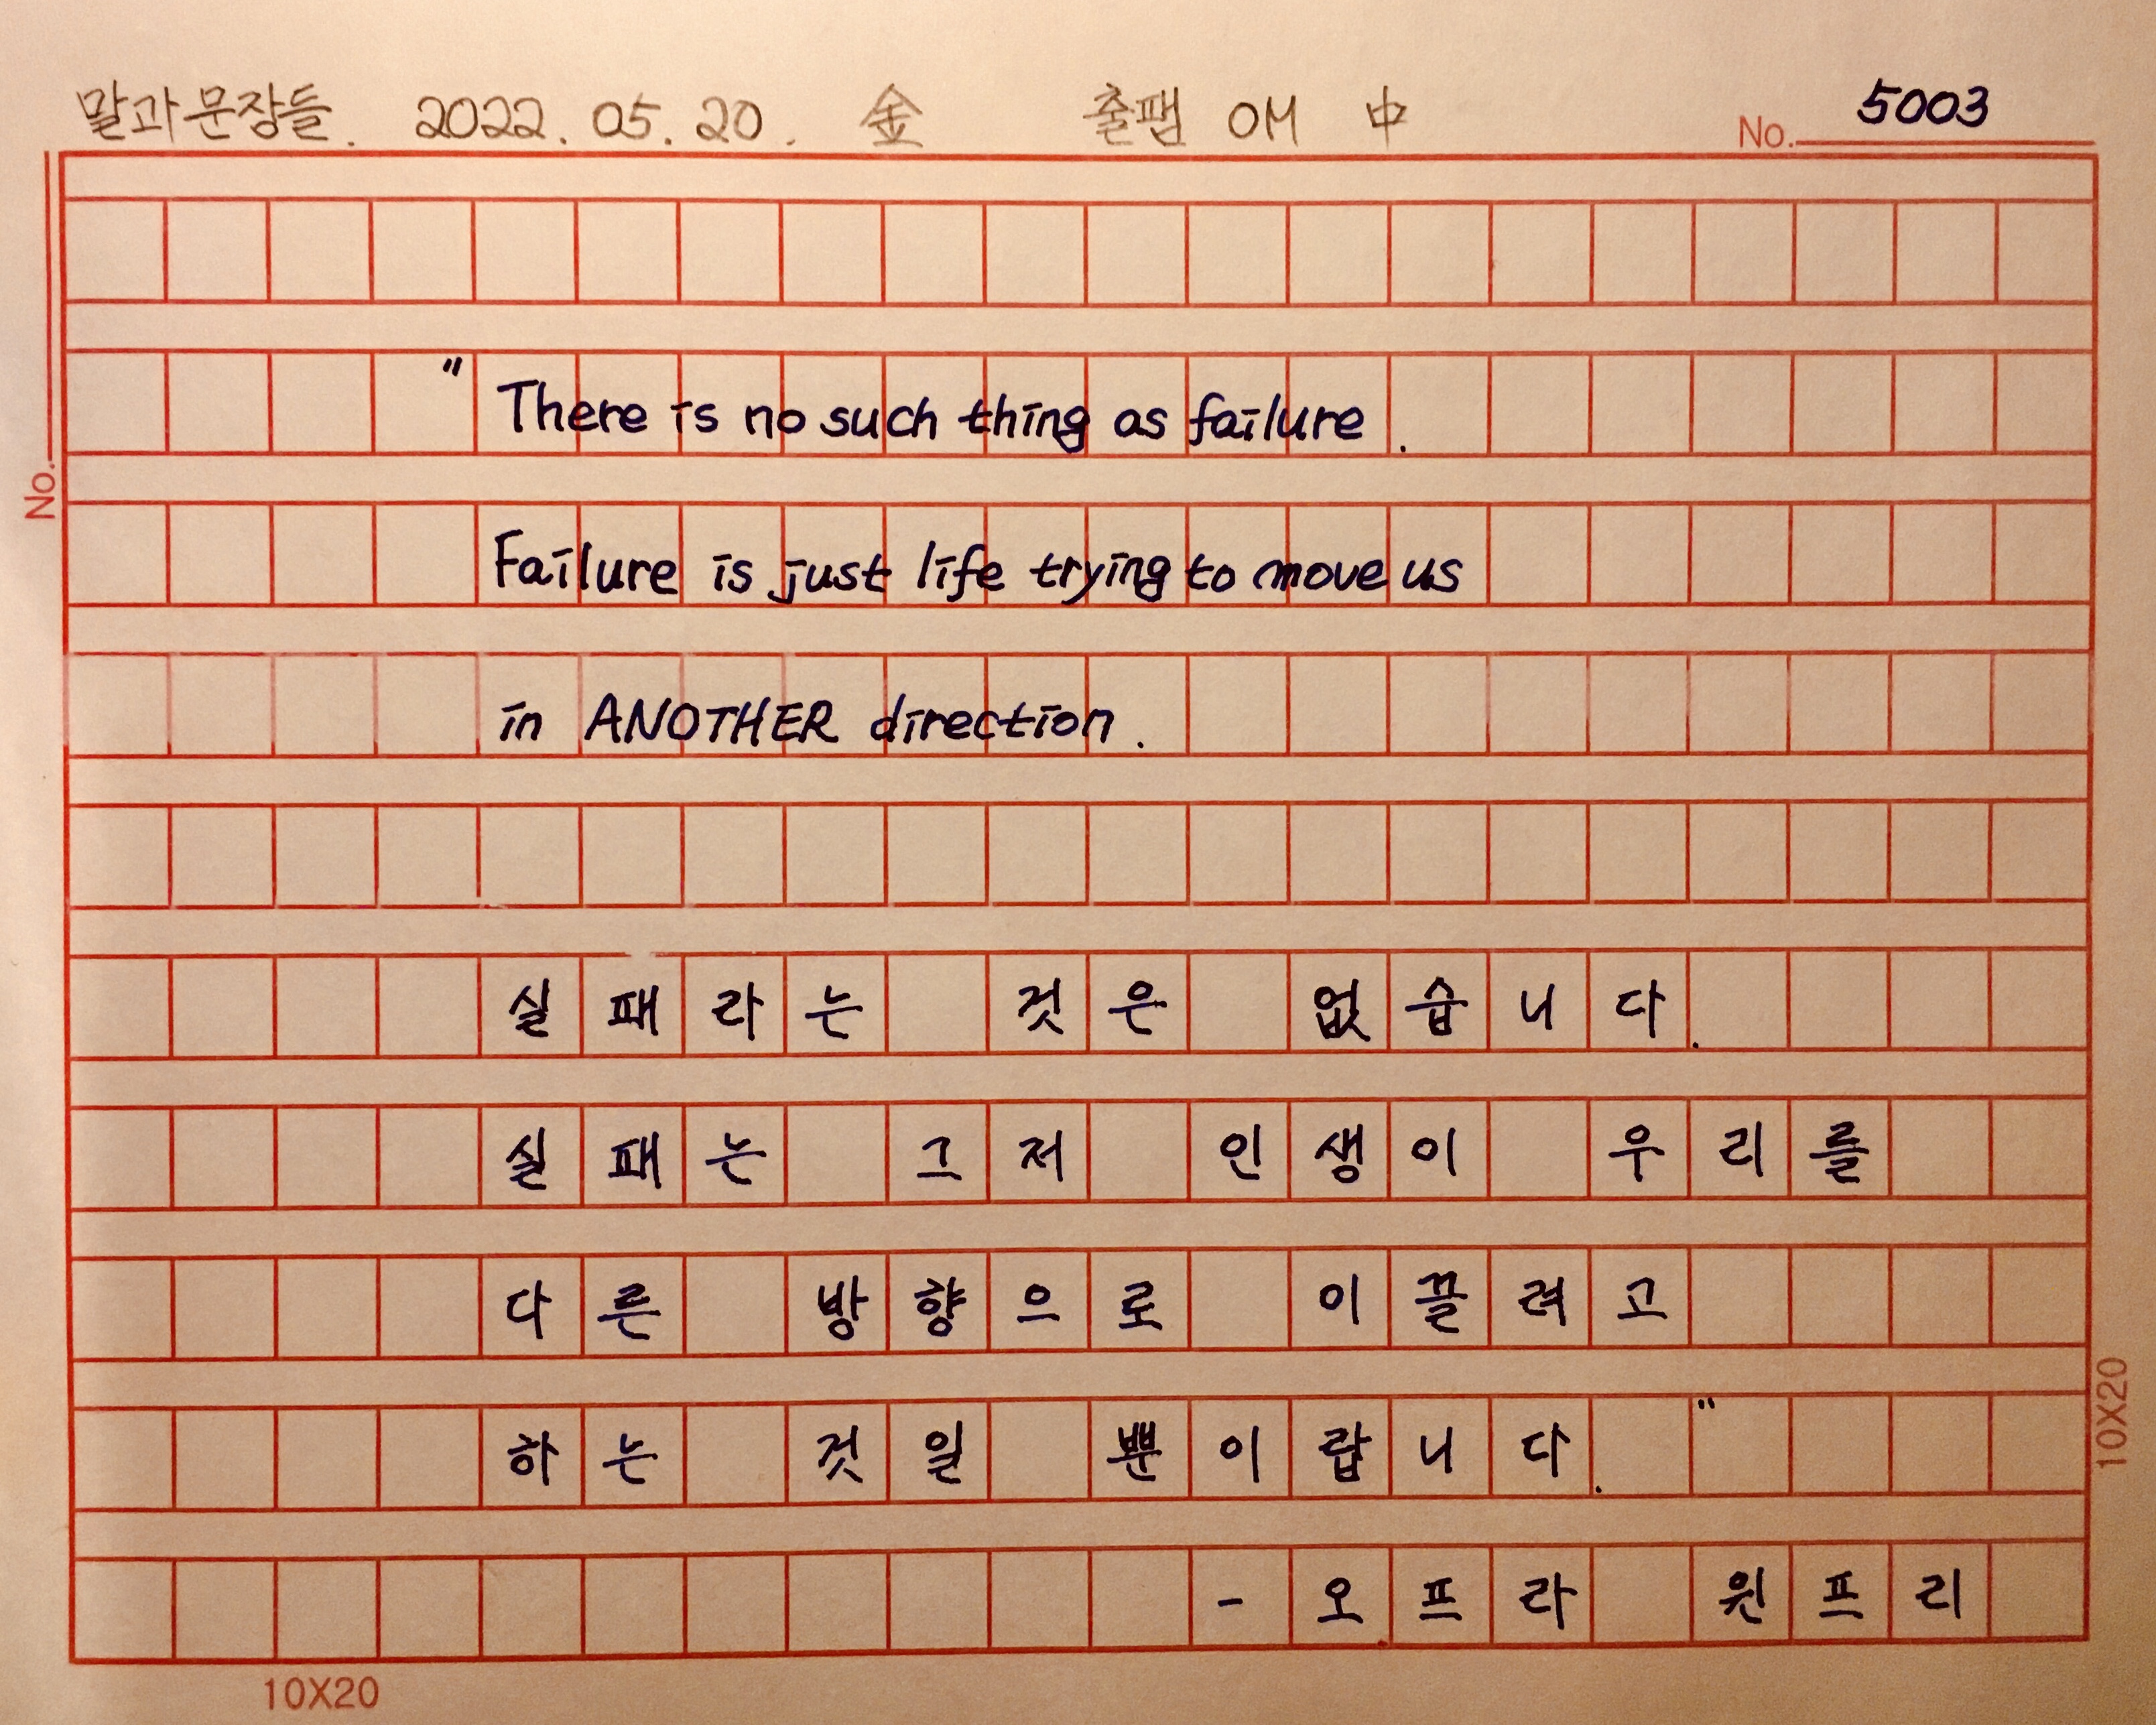 말과 문장들. 2022. 05. 20. 金 출팸 OM 中 No. 5003
" There is no such thing as failure.
No.
Failure is just life trying to move us
in ANOTHER direction.
실패라는 것은 없습니다.
실패는 그저 인생이 우리를
다른 방향으로 이끌려고
하는 것일 뿐이랍니다."
10X20
- 오프라 윈프리
10X20